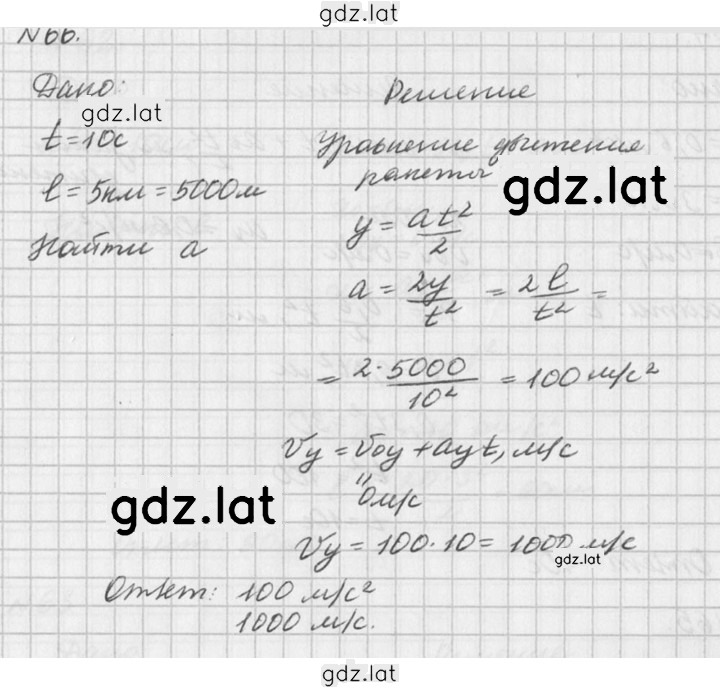 gdz.lat
N66.
Дано:
gdz.lat
t = 10с
l = 5км = 5000м
Найти a
Решение
Уравнение движения
ракеты
gdz.lat
y = at²/2
a = 2y/t² = 2l/t² =
= 2·5000/10² = 100 м/с²
Vy = V0y + ayt, м/с
"
0 м/с
gdz.lat
Vy = 100·10 = 1000 м/с
gdz.lat
Ответ: 100 м/с²
1000 м/с.
gdz.lat